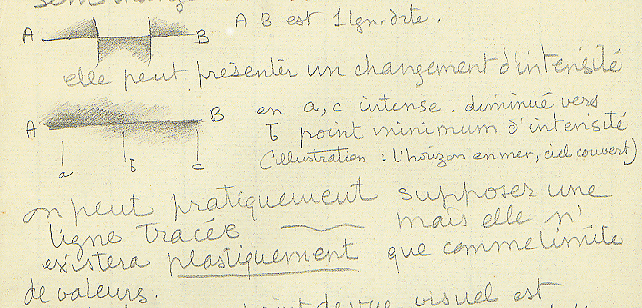 A B A B est 1 lgn. drte.
elle peut présenter un changement d'intensité
A B en a, c intense. diminué vers
b point minimum d'intensité
a b c (illustration : l'horizon en mer, ciel couvert)
on peut pratiquement supposer une
ligne tracée mais elle n'
existera plastiquement que comme limite
de valeurs.
visuel est